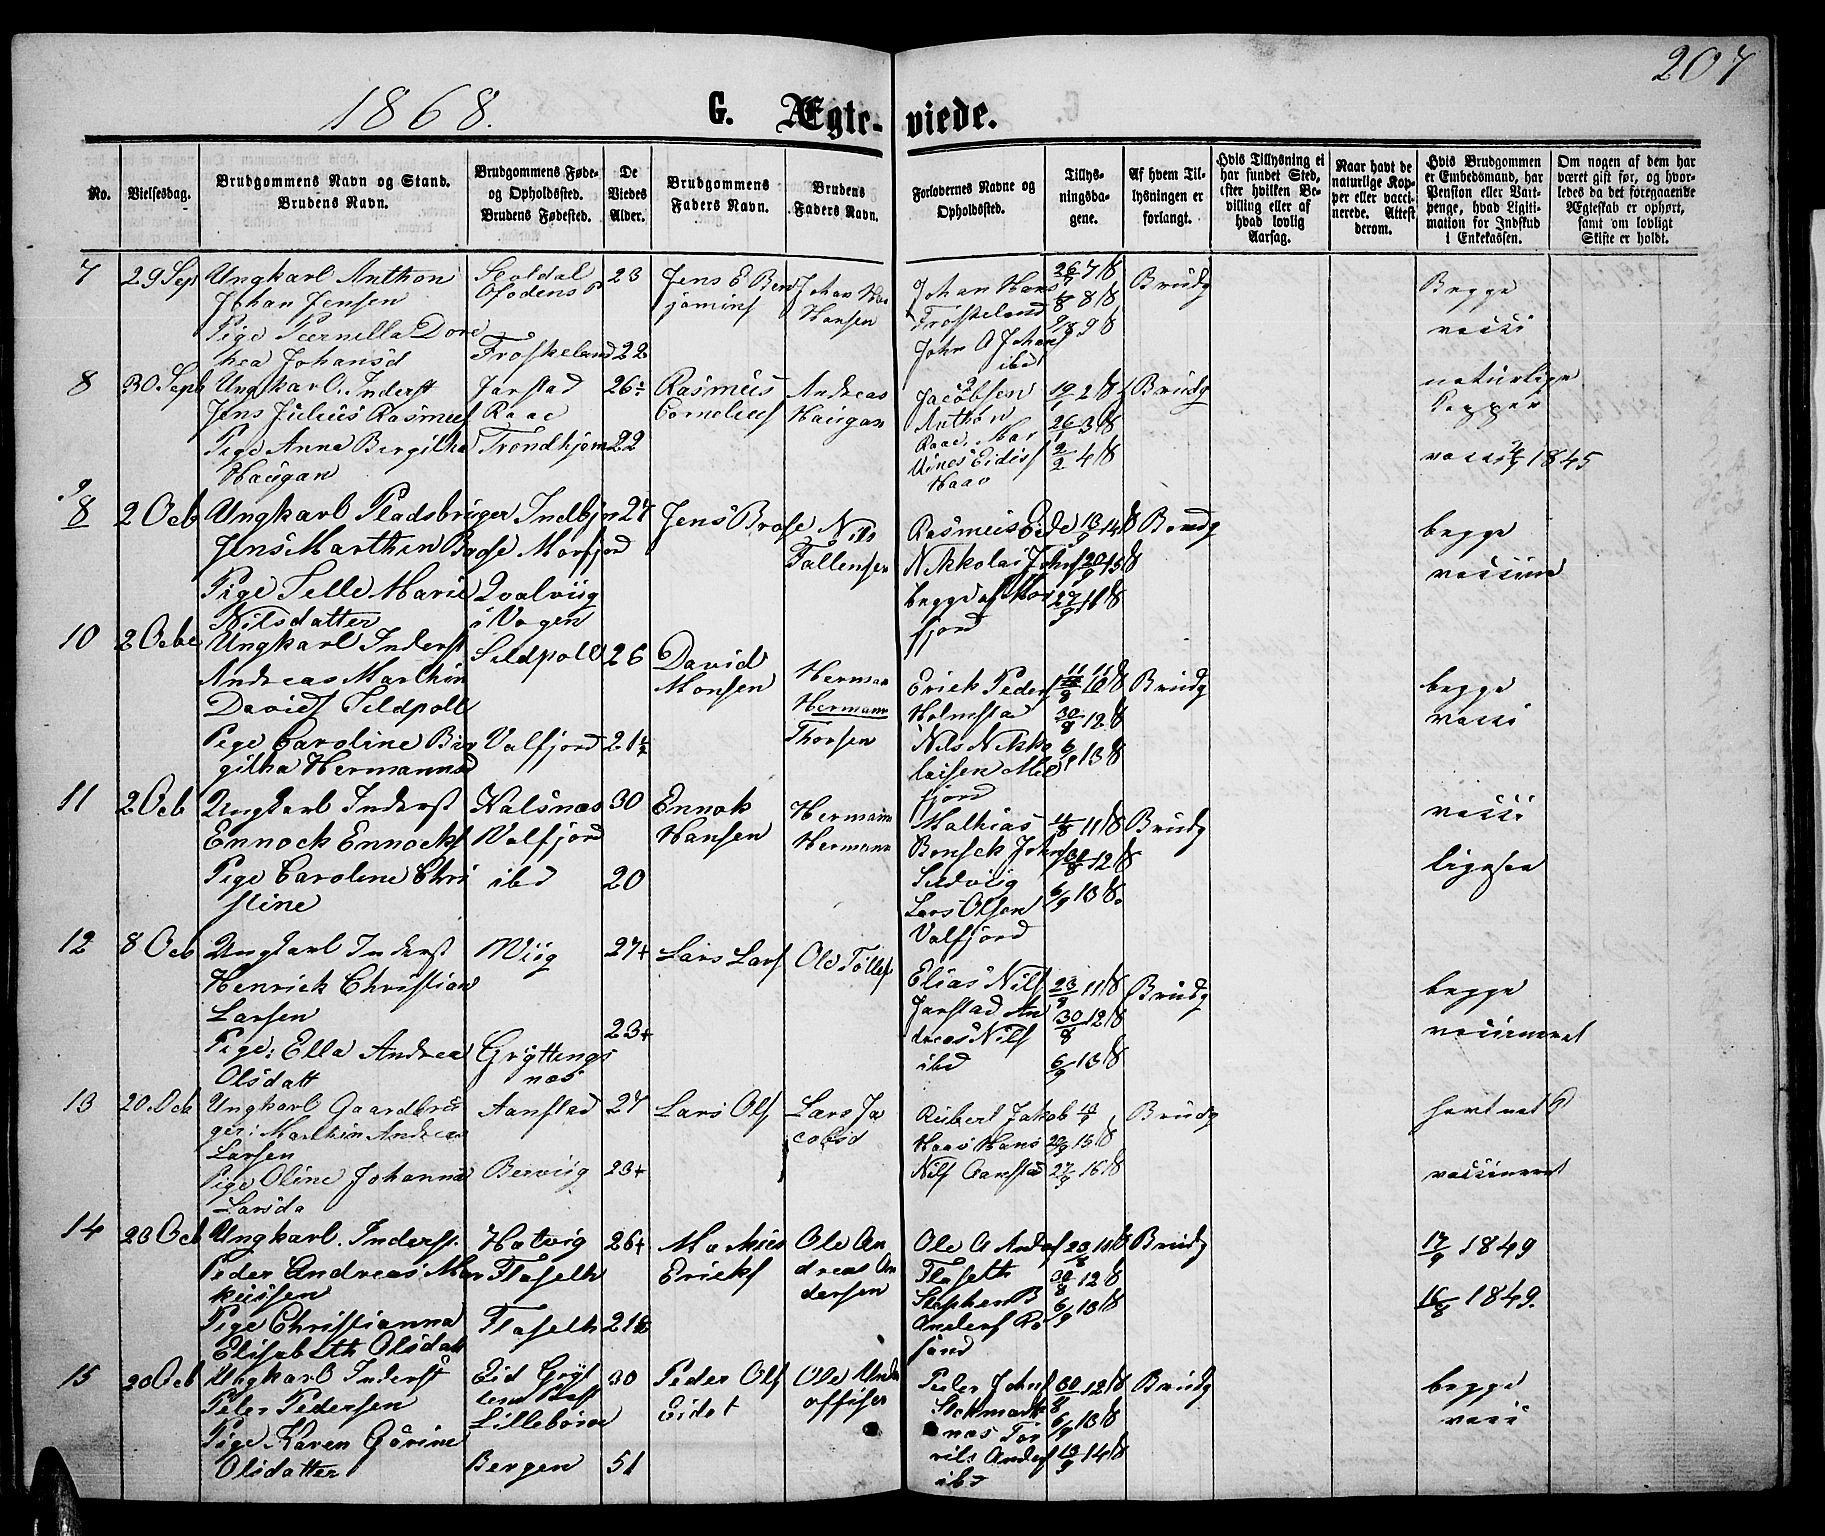 207
1868.
G. Ægte-viede.
No.
Vielsesdag.
Brudgommens Navn og Stand.
Brudens Navn.
Brudgommens Føde-
og Opholdssted.
Brudens Fødested.
De
Viedes
Alder.
Brudgommens
Faders Navn.
Brudens
Faders Navn.
Forlovernes Navne og
Opholdssted.
Tillys-
ningsda-
gene.
Af hvem Til-
lysningen er
forlangt.
Hvis Tillysning ei
har fundet Sted,
efter hvilken Be-
villing eller af
hvad lovlig
Aarsag.
Naar havt de
naturlige Kop-
per eller vacci-
nerede. Attest
derom.
Hvis Brudgommen
er Embedsmand, har
Pension eller Vart-
penge, hvad Ligiti-
mation for Indskud
i Enkekassen.
Om nogen af dem har
været gift før, og hvor-
ledes da det foregaaende
Ægteskab er ophørt,
samt om lovligt
Skifte er holdt.
7 29 Sept Ungkarl Anthon
Johan Jensen
Pige Pernella Dore
thea Johansd
Ofodens P
Froskeland
23
22
Jens E Ben
jamins
Johan
Hansen
Johan Hans
Froskeland
John A Johans
ibd
26/7 7/8
8/8
9/8
Brudg
Begge
vacci
8 30 Sept Ungkarl. Inderst
Jens Julius Rasmus
Pige Anna Bergitha
Haugan
Jarstad
Raae
Trondhjem
26
22
Rasmus
Cornelius
Andreas
Haugan
Jacobsen
Anthon
Raae
19/1 2/8
26/1 3/8
2/2 4/8
Brudg
naturlige
Kopper
vacci 1845
9
8 2 Octb Ungkarl Pladsbruger
Jens Marthin
Pige Selle Marie
Nilsdatter
Morfjord
Qvalviig
i Vagen
27
Jens
Nils
Tallensen
Rasmus Eide
Nikkolai Johns
begge af Mor
fjord
13/9 14/8
20/9 15/8
27/9 16/8
Brudg
begge
10 2 Octb Ungkarl Inderst
Andreas Marthin
Davids Sildpoll
Pige Caroline Bir
githa Hermannsd
Sildpoll
Valfjord
26
21½
David
Monsen
Herman
Hermann
Thorsen
Erick Peders
Holmstad
Nils Nikko
laisen
fjord
30/8 12/8
6/9 13/8
Brudg
begge
vacci
11 2 Octb Ungkarl Inderst
Ennock Ennocks
Pige Carolene Chri
stine
Kalsnæs
Valfjord
ibd
30
20
Ennok
Hansen
Hermann
Hermann
Mathias
Johns
Ludviig
Lars Olsen
Valfjord
11/8
30/8 12/8
6/9 13/8
Brudg
vacci
ligesaa
12 8 Octb Ungkarl Inderst
Henrick Christian
Larsen
Pige: Ella Andrea
Olsdatt
Wiig
Gryttings
næs
27+
23+
Lars Lars
Ole Tollefs
Elias Nils
Jarstad An
dreas Nils
ibd
23/8 11/8
30/8 12/8
6/9 13/8
Brudg
begge
vaccineret
13 20 Octb Ungkarl Gaardbru
ger: Marthin Andreas
Larsen
Pige Oline Johanna
Larsda
Aanstad
Berviig
27
23+
Lars Ols
Lars Ja
cobsd
Reibert Jakob
Haas Hans
Nils Aanstad
20/9 15/8
27/9 16/8
Brudg
vaccineret
14 20 Oct Ungkarl. Inderst
Peder Andreas Mar
kussen
Pige Christianna
Elisabeth Olsdatt
Hatvig
Flaseth
Flaseth
26+
21
Markus
Ericks
Ole An
dreas An
dersen
Ole A Anders
Flaseth
Stephen B
Anders Ro
sand
30/8 12/8
6/9 13/8
Brudg
17/9 1849
16/8 1849.
15 20 Octb Ungkarl Inderst
Peter Pedersen
Pige Karen Gurine
Olsdatter
Eid Gryt
Lillebørøe
Bergen
30
51
Peder Ols
Eidet
Ole Und
officer
Peter Johns
Stokmark
næs Tor
rils Anders
ibd
30/8 12/8
6/9 13/8
13/9 14/8
Brudg
begge
vacci